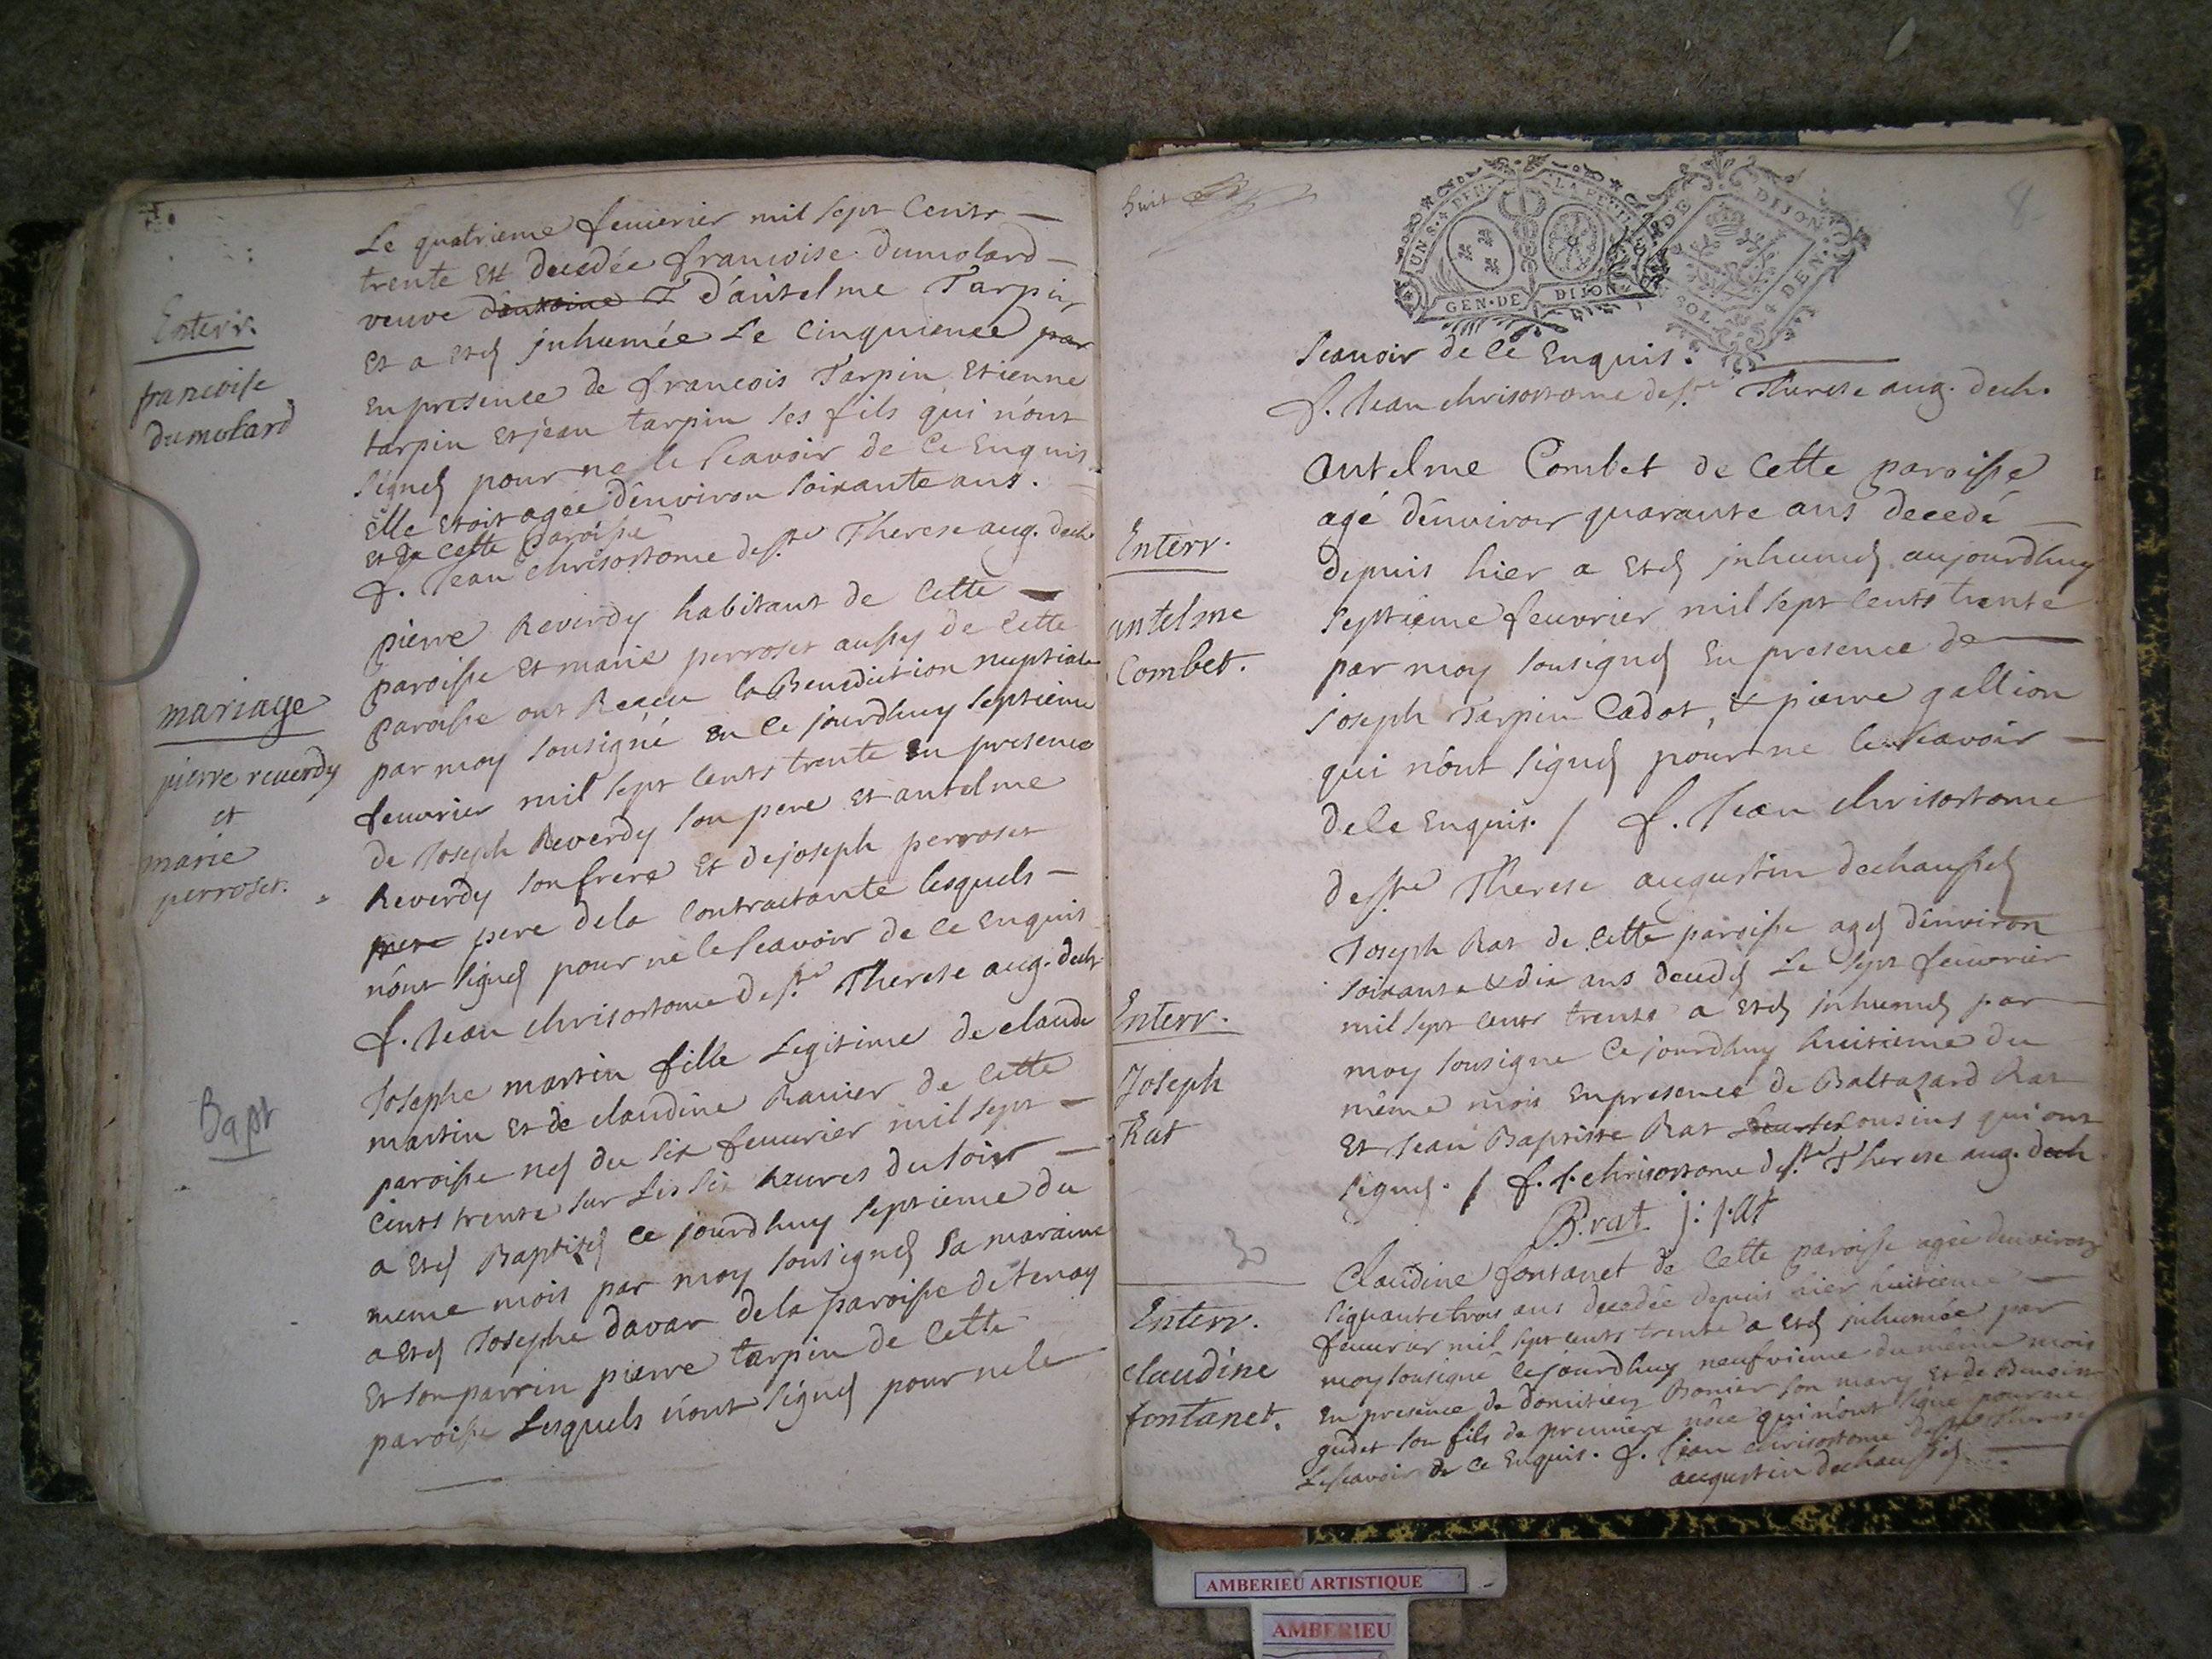 Enterr.
francoise
dumolard
Le quatrieme feuvrier mil sept Cents
trente Est decedée francoise dumolard
veuve d'antelme Tarpin
Et a eté jnhumée Le Cinquieme par
En presence de francois Tarpin Etienne
tarpin et jean tarpin ses fils qui n'ont
signé pour ne le scavoir de Ce Enquis
Elle Etoit agée d'environ soixante ans.
et de Cette paroisse
f. Jean chrisostome de ste Therese aug. dech.
mariage
pierre reuerdy
et
marie
perroset.
pierre Reverdy habitant de Cette
paroisse Et marie perroset aussy de Cette
paroisse ont Receu la Benediction nuptiale
par moy sousigné en Ce jourdhuy septieme
feuvrier mil sept cents trente En presence
de Joseph Reverdy son pere et antelme
Reverdy son frere Et de joseph perroset
pere de la Contractante lesquels
n'ont signé pour ne le scavoir de Ce Enquis
f. Jean chrisostome de ste Therese aug. dech.
Bapt
Josephe martin fille Legitime de claude
martin Et de claudine Ravier de Cette
paroisse né du six feuvrier mil sept
Cents trente sur Les six heures du soir
a eté Baptizé Ce jourdhuy septieme du
meme mois par moy sousigné sa maraine
a eté Josephe davar de la paroisse de tenay
Et son parrin pierre tarpin de Cette
paroisse Lesquels n'ont signé pour ne le
huit
8
UN S.
GEN. DE DIJON
DIJON
GEN. DE
SOL
scavoir de Ce Enquis.
f. Jean chrisostome de ste Therese aug. dech.
Enterr.
antelme
Combet.
antelme Combet de Cette paroisse
agé d'environ quarante ans decedé
depuis hier a eté jnhumé aujourdhuy
septieme feuvrier mil sept cents trente
par moy sousigné En presence de
Joseph Tarpin Cadot, & pierre gallion
qui n'ont signé pour ne le scavoir
de Ce Enquis. / f. Jean chrisostome
de ste Therese augustin dechaussé
Enterr.
Joseph
Rat
Joseph Rat de Cette paroisse agé d'environ
soixante & dix ans decedé Le sept feuvrier
mil sept cents trente a eté jnhumé par
moy sousigne Ce jourdhuy huitieme du
même mois En presence de Baltazard Rat
Et Jean Baptiste Rat cousins qui ont
signé. / f. J. chrisostome de ste Therese aug. dech
B. rat j: rat
Enterr.
claudine
fontanet.
Claudine fontanet de Cette paroisse agée d'environ
siquante trois ans decedée depuis hier huitieme
feuvrier mil sept cents trente a eté jnhumée par
moy sousigné Ce jourdhuy neufvieme du même mois
En presence de domitien Bonier son mary Et de Benoist
gudet son fils de premiere noce qui n'ont signé pour ne
Le scavoir de Ce Enquis. f. Jean chrisostome de ste Therese
augustin dechaussé
AMBERIEU ARTISTIQUE
AMBERIEU